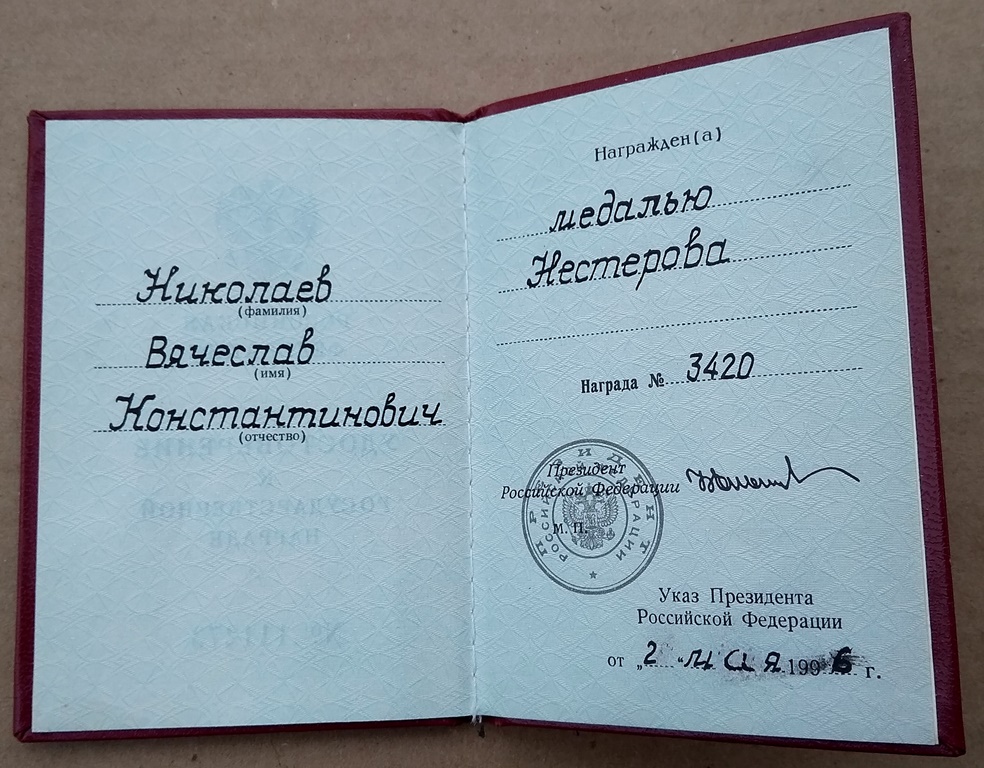 Николаев
(фамилия)
Вячеслав
(имя)
Константинович
(отчество)
Награжден(а)
медалью
Нестерова
Награда № 3420
Президент
Российской Федерации
М. П.
ПРЕЗИДЕНТ
РОССИЙСКОЙ ФЕДЕРАЦИИ
Указ Президента
Российской Федерации
от „2“ мая 1996 г.